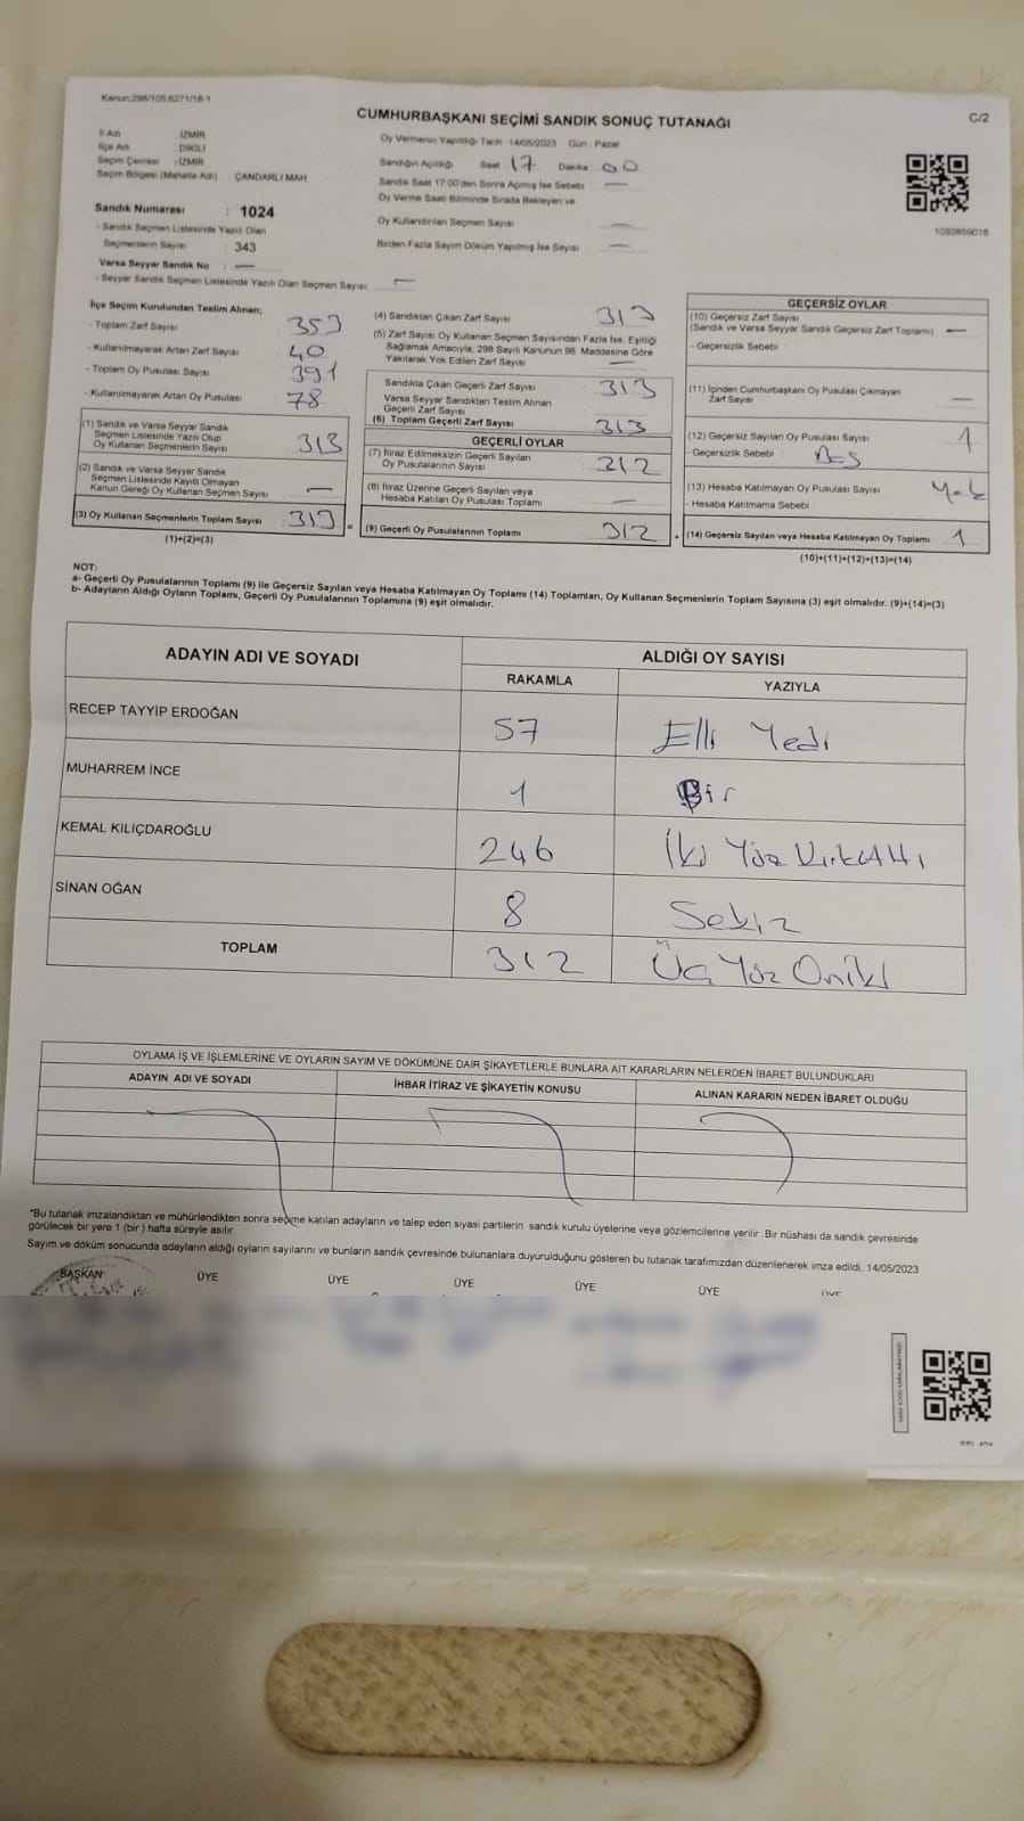 Kanun:298/105,6271/18-1
CUMHURBAŞKANI SEÇİMİ SANDIK SONUÇ TUTANAĞI
C/2
İl Adı : İZMİR
İlçe Adı : DİKİLİ
Seçim Çevresi : İZMİR
Seçim Bölgesi (Mahalle Adı) : ÇANDARLI MAH.
Sandık Numarası : 1024
- Sandık Seçmen Listesinde Yazılı Olan
Seçmenlerin Sayısı : 343
Varsa Seyyar Sandık No : —
- Seyyar Sandık Seçmen Listesinde Yazılı Olan Seçmen Sayısı : —
Oy Vermenin Yapıldığı Tarih : 14/05/2023 Gün : Pazar
Sandığın Açıldığı Saat 17 Dakika 00
Sandık Saat 17:00'den Sonra Açılmış İse Sebebi —
Oy Verme Saati Bitiminde Sırada Bekleyen ve
Oy Kullandırılan Seçmen Sayısı —
Birden Fazla Sayım Döküm Yapılmış İse Sayısı —
1080859018
İlçe Seçim Kurulundan Teslim Alınan;
- Toplam Zarf Sayısı 353
- Kullanılmayarak Artan Zarf Sayısı 40
- Toplam Oy Pusulası Sayısı 391
- Kullanılmayarak Artan Oy Pusulası 78
(1) Sandık ve Varsa Seyyar Sandık
Seçmen Listesinde Yazılı Olup
Oy Kullanan Seçmenlerin Sayısı 313
(2) Sandık ve Varsa Seyyar Sandık
Seçmen Listesinde Kayıtlı Olmayan
Kanun Gereği Oy Kullanan Seçmen Sayısı —
(3) Oy Kullanan Seçmenlerin Toplam Sayısı 313
(1)+(2)=(3)
(4) Sandıktan Çıkan Zarf Sayısı 313
(5) Zarf Sayısı Oy Kullanan Seçmen Sayısından Fazla İse, Eşitliği
Sağlamak Amacıyla, 298 Sayılı Kanunun 98. Maddesine Göre
Yakılarak Yok Edilen Zarf Sayısı —
Sandıkta Çıkan Geçerli Zarf Sayısı 313
Varsa Seyyar Sandıktan Teslim Alınan
Geçerli Zarf Sayısı
(6) Toplam Geçerli Zarf Sayısı 313
GEÇERLİ OYLAR
(7) İtiraz Edilmeksizin Geçerli Sayılan
Oy Pusulalarının Sayısı 312
(8) İtiraz Üzerine Geçerli Sayılan veya
Hesaba Katılan Oy Pusulası Toplamı —
(9) Geçerli Oy Pusulalarının Toplamı 312
GEÇERSİZ OYLAR
(10) Geçersiz Zarf Sayısı
(Sandık ve Varsa Seyyar Sandık Geçersiz Zarf Toplamı) —
- Geçersizlik Sebebi
(11) İçinden Cumhurbaşkanı Oy Pusulası Çıkmayan
Zarf Sayısı —
(12) Geçersiz Sayılan Oy Pusulası Sayısı 1
- Geçersizlik Sebebi
(13) Hesaba Katılmayan Oy Pusulası Sayısı Yok
- Hesaba Katılmama Sebebi
(14) Geçersiz Sayılan veya Hesaba Katılmayan Oy Toplamı 1
(10)+(11)+(12)+(13)=(14)
NOT:
a- Geçerli Oy Pusulalarının Toplamı (9) ile Geçersiz Sayılan veya Hesaba Katılmayan Oy Toplamı (14) Toplamları, Oy Kullanan Seçmenlerin Toplam Sayısına (3) eşit olmalıdır. (9)+(14)=(3)
b- Adayların Aldığı Oyların Toplamı, Geçerli Oy Pusulalarının Toplamına (9) eşit olmalıdır.
ADAYIN ADI VE SOYADI
ALDIĞI OY SAYISI
RAKAMLA YAZIYLA
RECEP TAYYİP ERDOĞAN 57 Elli Yedi
MUHARREM İNCE 1 Bir
KEMAL KILIÇDAROĞLU 246 İki Yüz Kırk Altı
SİNAN OĞAN 8 Sekiz
TOPLAM 312 Üç Yüz Oniki
OYLAMA İŞ VE İŞLEMLERİNE VE OYLARIN SAYIM VE DÖKÜMÜNE DAİR ŞİKAYETLERLE BUNLARA AİT KARARLARIN NELERDEN İBARET BULUNDUKLARI
ADAYIN ADI VE SOYADI İHBAR İTİRAZ VE ŞİKAYETİN KONUSU ALINAN KARARIN NEDEN İBARET OLDUĞU
*Bu tutanak imzalandıktan ve mühürlendikten sonra seçime katılan adayların ve talep eden siyasi partilerin sandık kurulu üyelerine veya gözlemcilerine verilir. Bir nüshası da sandık çevresinde
görülecek bir yere 1 (bir) hafta süreyle asılır.
Sayım ve döküm sonucunda adayların aldığı oyların sayılarını ve bunların sandık çevresinde bulunanlara duyurulduğunu gösteren bu tutanak tarafımızdan düzenlenerek imza edildi. 14/05/2023
BAŞKAN ÜYE ÜYE ÜYE ÜYE ÜYE ÜYE